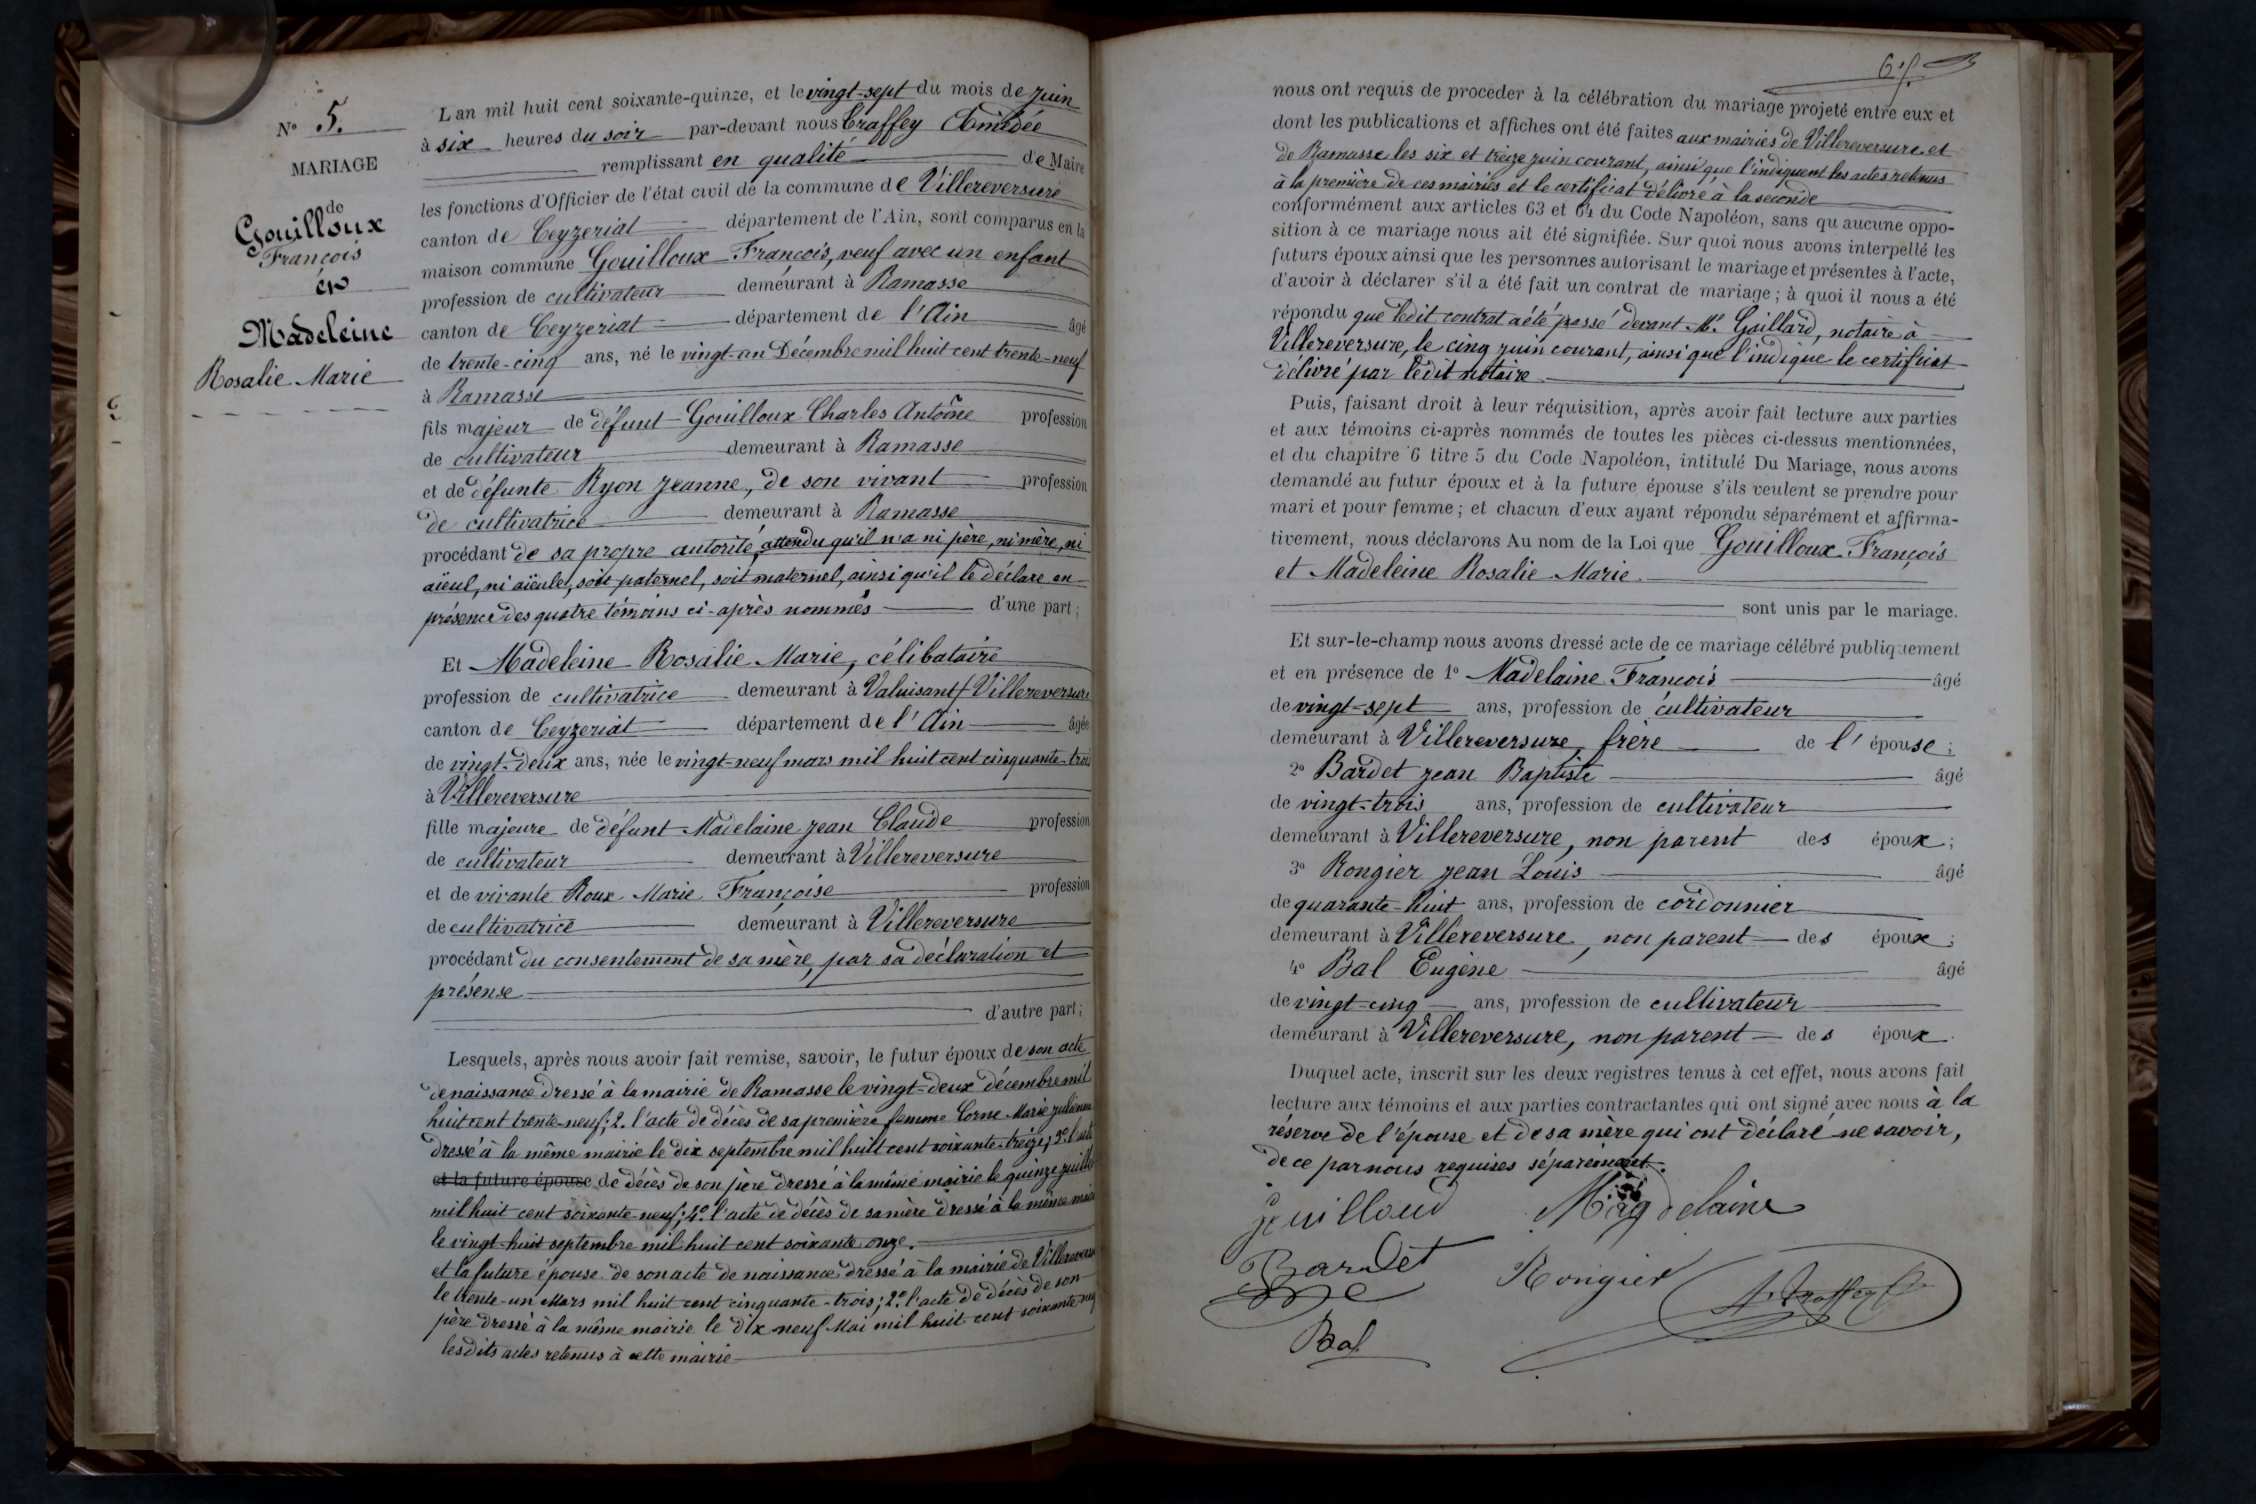 N° 5.
MARIAGE
de
Gouilloux
François
et
Madeleine
Rosalie Marie
L'an mil huit cent soixante-quinze, et le vingt-sept du mois de juin
à six heures du soir par-devant nous Craffey Amédée
remplissant en qualité de Maire
les fonctions d'Officier de l'état civil de la commune de Villereversure
canton de Ceyzeriat département de l'Ain, sont comparus en la
maison commune Gouilloux François, veuf avec un enfant
profession de cultivateur demeurant à Ramasse
canton de Ceyzeriat département de l'Ain âgé
de trente-cinq ans, né le vingt-un Décembre mil huit cent trente-neuf
à Ramasse
fils majeur de défunt Gouilloux Charles Antoine profession
de cultivateur demeurant à Ramasse
et de défunte Ryon Jeanne, de son vivant profession
de cultivatrice demeurant à Ramasse
procédant de sa propre autorité, attendu qu'il n'a ni père, ni mère, ni
aïeul, ni aïeule, soit paternel, soit maternel, ainsi qu'il le déclare en
présence des quatre témoins ci-après nommés d'une part;
Et Madeleine Rosalie Marie, célibataire
profession de cultivatrice demeurant à Valuisant/Villereversure
canton de Ceyzeriat département de l'Ain âgée
de vingt-deux ans, née le vingt-neuf mars mil huit cent cinquante-trois
à Villereversure
fille majeure de défunt Madelaine Jean Claude profession
de cultivateur demeurant à Villereversure
et de vivante Roux Marie Françoise profession
de cultivatrice demeurant à Villereversure
procédant du consentement de sa mère, par sa déclaration et
présense
d'autre part;
Lesquels, après nous avoir fait remise, savoir, le futur époux de son acte
de naissance dressé à la mairie de Ramasse le vingt-deux décembre mil
huit cent trente-neuf; 2. l'acte de décès de sa première femme Corne Marie Julienne
dressé à la même mairie le dix septembre mil huit cent soixante-treize; 3° l'acte
et la future épouse de décès de son père dressé à la même mairie le quinze juillet
mil huit cent soixante-neuf; 4° l'acte de décès de sa mère dressé à la même mairie
le vingt-huit septembre mil huit cent soixante onze.
et la future épouse de son acte de naissance dressé à la mairie de Villereversure
le trente-un Mars mil huit cent cinquante-trois; 2° l'acte de décès de son
père dressé à la même mairie le dix neuf Mai mil huit cent soixante neuf
lesdits actes retenus à cette mairie
nous ont requis de procéder à la célébration du mariage projeté entre eux et
dont les publications et affiches ont été faites aux mairies de Villereversure et
de Ramasse les six et treize juin courant, ainsi que l'indiquent les actes retenus
à la première de ces mairies et le certificat délivré à la seconde
conformément aux articles 63 et 64 du Code Napoléon, sans qu'aucune oppo-
sition à ce mariage nous ait été signifiée. Sur quoi nous avons interpellé les
futurs époux ainsi que les personnes autorisant le mariage et présentes à l'acte,
d'avoir à déclarer s'il a été fait un contrat de mariage; à quoi il nous a été
répondu que ledit contrat a été passé devant Me Gaillard, notaire à
Villereversure, le cinq juin courant, ainsi que l'indique le certificat
délivré par ledit notaire
Puis, faisant droit à leur réquisition, après avoir fait lecture aux parties
et aux témoins ci-après nommés de toutes les pièces ci-dessus mentionnées,
et du chapitre 6 titre 5 du Code Napoléon, intitulé Du Mariage, nous avons
demandé au futur époux et à la future épouse s'ils veulent se prendre pour
mari et pour femme; et chacun d'eux ayant répondu séparément et affirma-
tivement, nous déclarons Au nom de la Loi que Gouilloux François
et Madeleine Rosalie Marie
sont unis par le mariage.
Et sur-le-champ nous avons dressé acte de ce mariage célébré publiquement
et en présence de 1° Madelaine François âgé
de vingt-sept ans, profession de cultivateur
demeurant à Villereversure, frère de l'épouse;
2° Bardet Jean Baptiste âgé
de vingt-trois ans, profession de cultivateur
demeurant à Villereversure, non parent des époux;
3° Rongier Jean Louis âgé
de quarante-huit ans, profession de cordonnier
demeurant à Villereversure, non parent des époux;
4° Bal Eugène âgé
de vingt-cinq ans, profession de cultivateur
demeurant à Villereversure, non parent des époux.
Duquel acte, inscrit sur les deux registres tenus à cet effet, nous avons fait
lecture aux témoins et aux parties contractantes qui ont signé avec nous à la
réserve de l'épouse et de sa mère qui ont déclaré ne savoir,
de ce par nous requises séparément.
gouilloud Magdelaine
Bardet Rongier
Bal